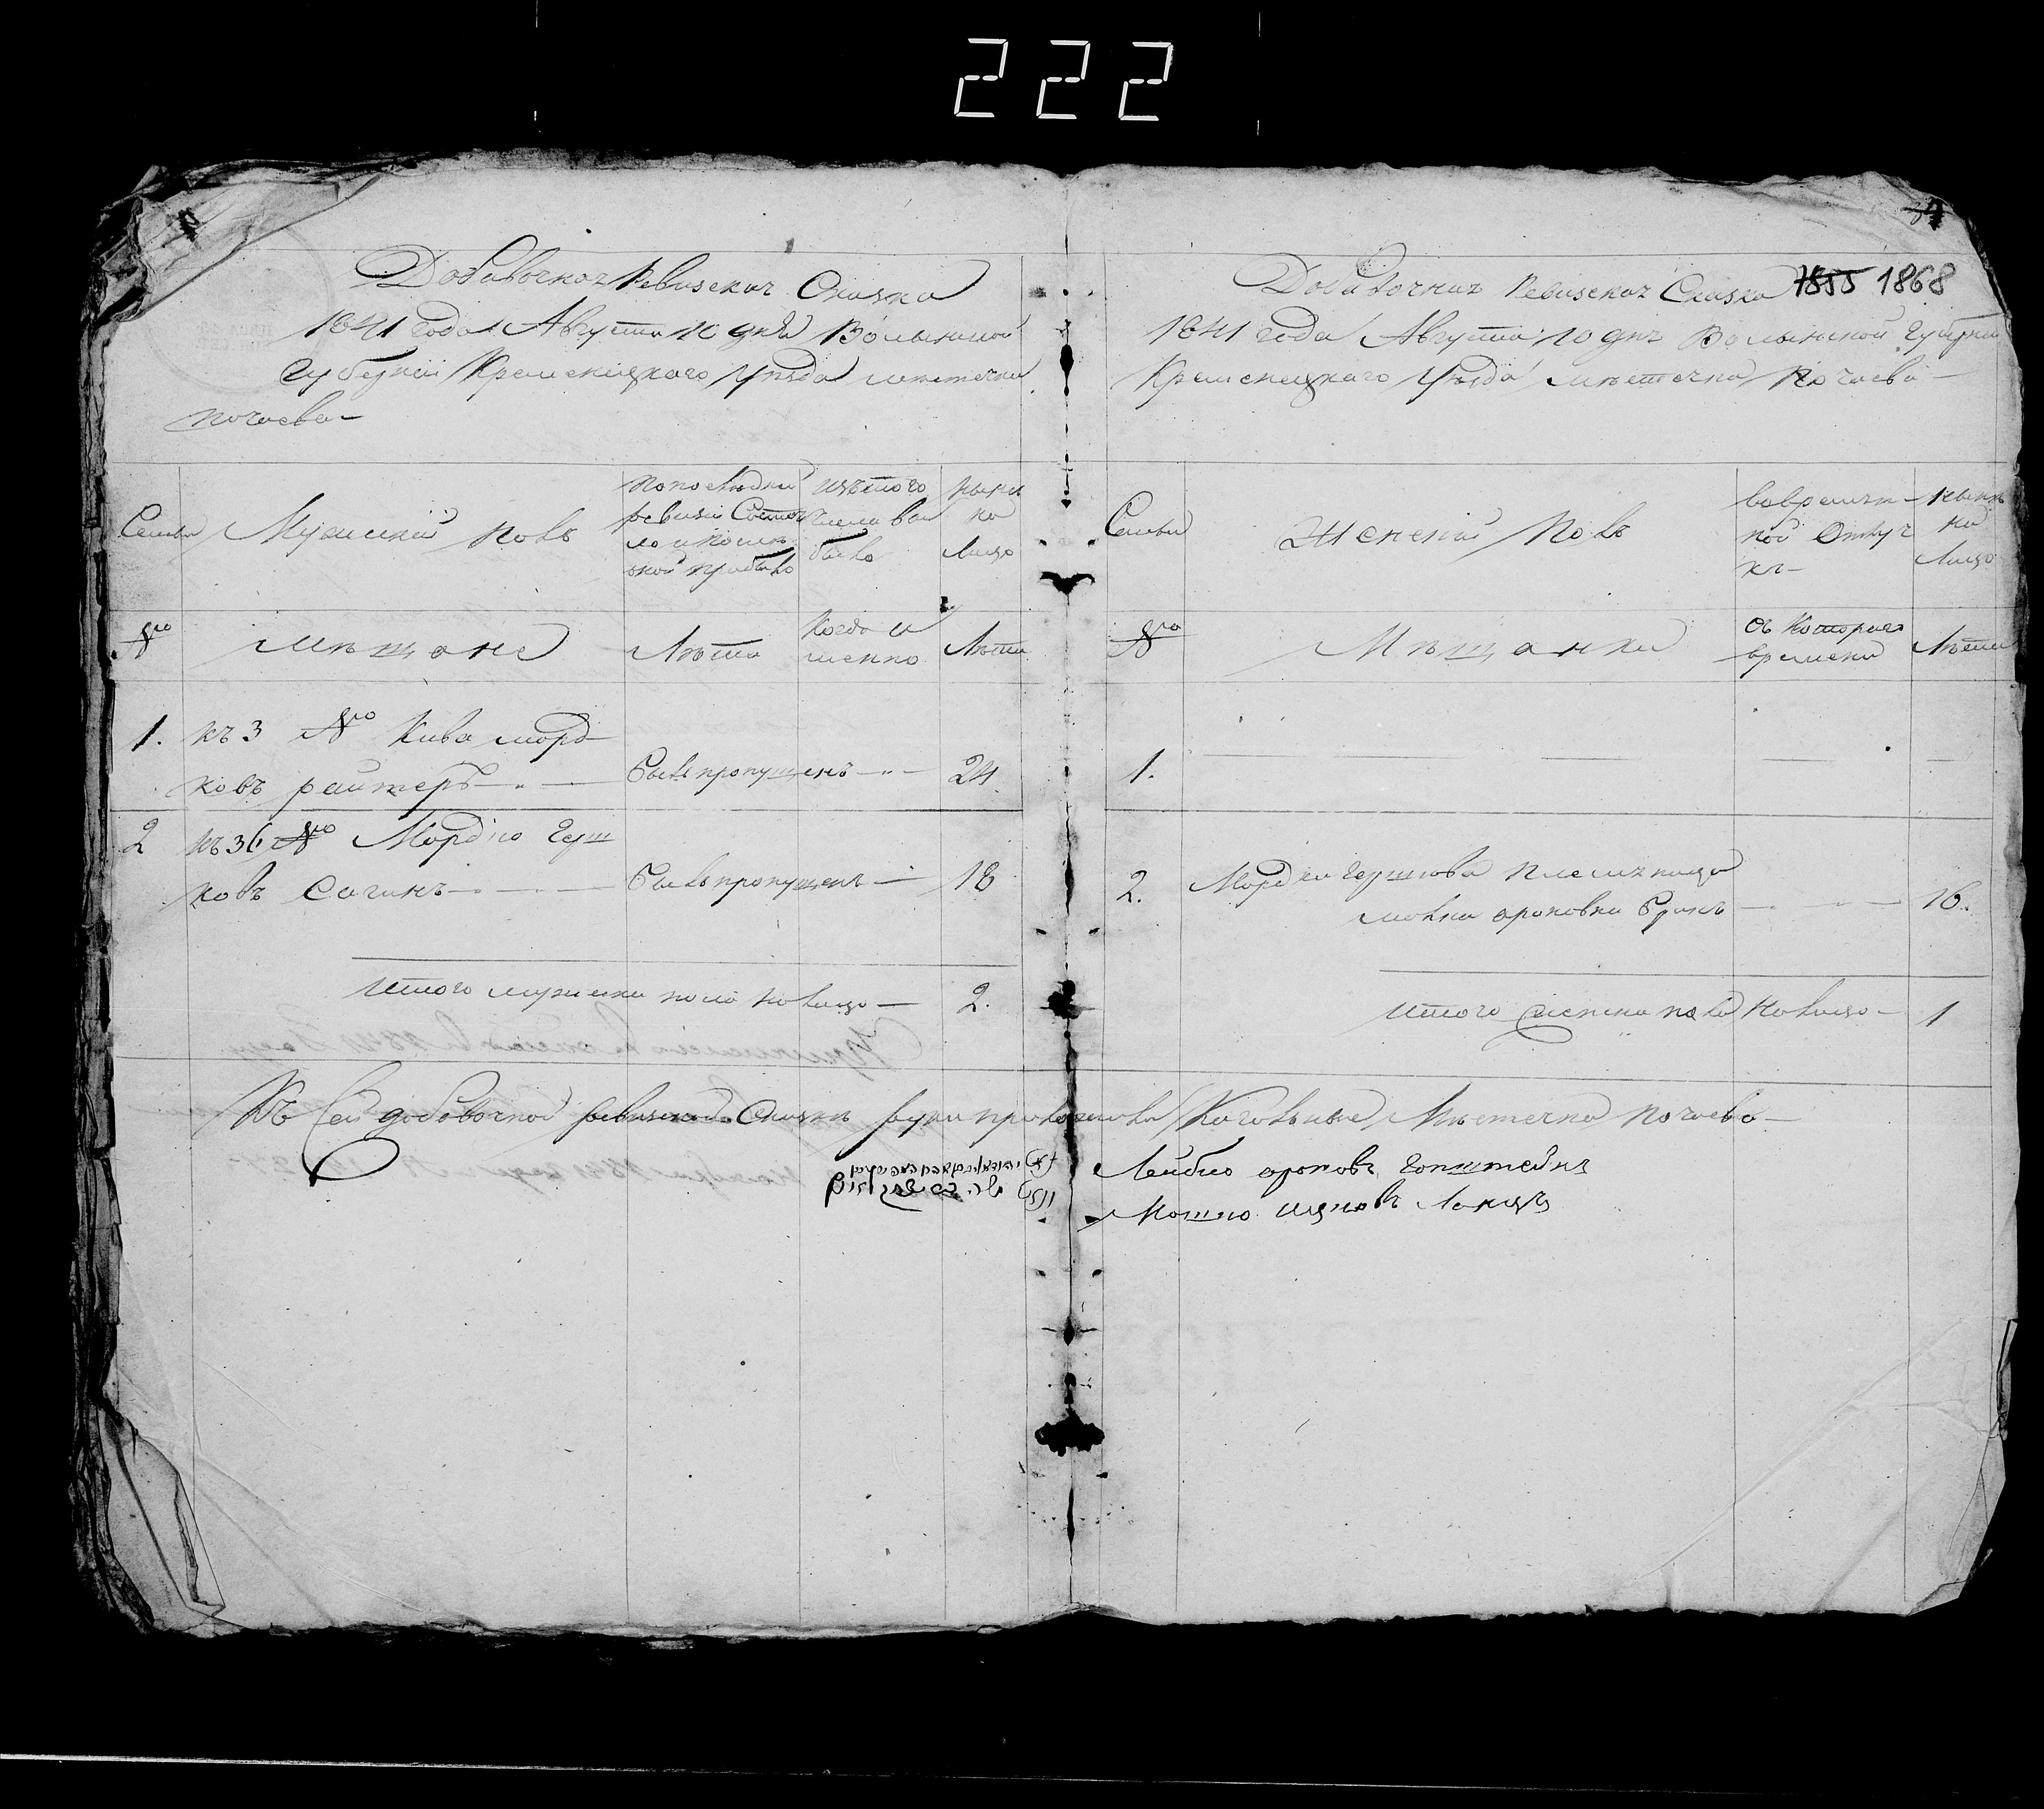 222
Добавочная Ревизская Сказка
1841 года Августа 10 дня Волынской
Губернии Кременецкаго Уѣзда мѣстечка
Почаева
Семьи
Мужескій полъ
По последней
ревизіи Состоя
ло и после
оной прибыло
изъ того
числа вы
было
ныне
на
лицо
№
мѣщане
Лѣта
когда и
менно
Лѣта
1. къ 3 № Кива морд
ковъ райтеръ — Былъ пропущенъ — 24
2 къ 36 № Мордко Герш
ковъ Саганъ — Былъ пропущенъ — 18
Итого мужеска пола на лицо — 2.
Добавочная Ревизская Сказка 1855 1868
1841 года Августа 10 дня Волынской Губернии
Кременецкаго Уѣзда мѣстечка Почаева
Семьи
Женскій Полъ
во времян
ной Отлуч
кѣ
нынѣ
на
лицо
№
Мѣщанки
съ котораго
времени
Лѣта
1.
2. Мордки Гершкова племянница
ароновна 16.
Итого женска пола на лицо — 1
Къ Сей добавочной ревизской Сказкѣ руки приложили Кагальные Мѣстечка Почаева
Лейбко ароновъ Гопштейнъ
Мошко ицковъ Ланцъ